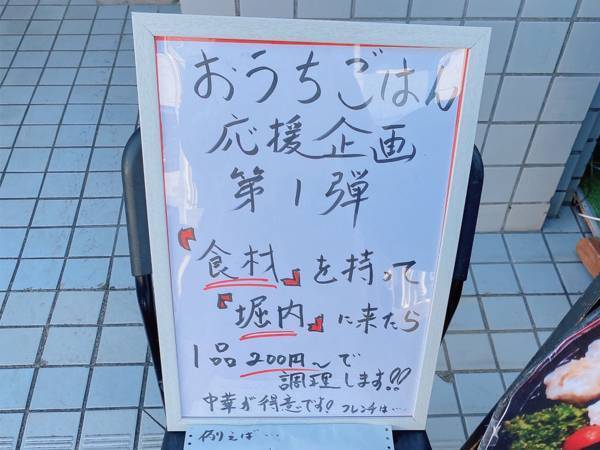 おうちごはん
応援企画
第1弾
『食材』を持って
『堀内』に来たら
1品200円〜で
調理します!!
中華が得意です! フレンチは…
例えば…